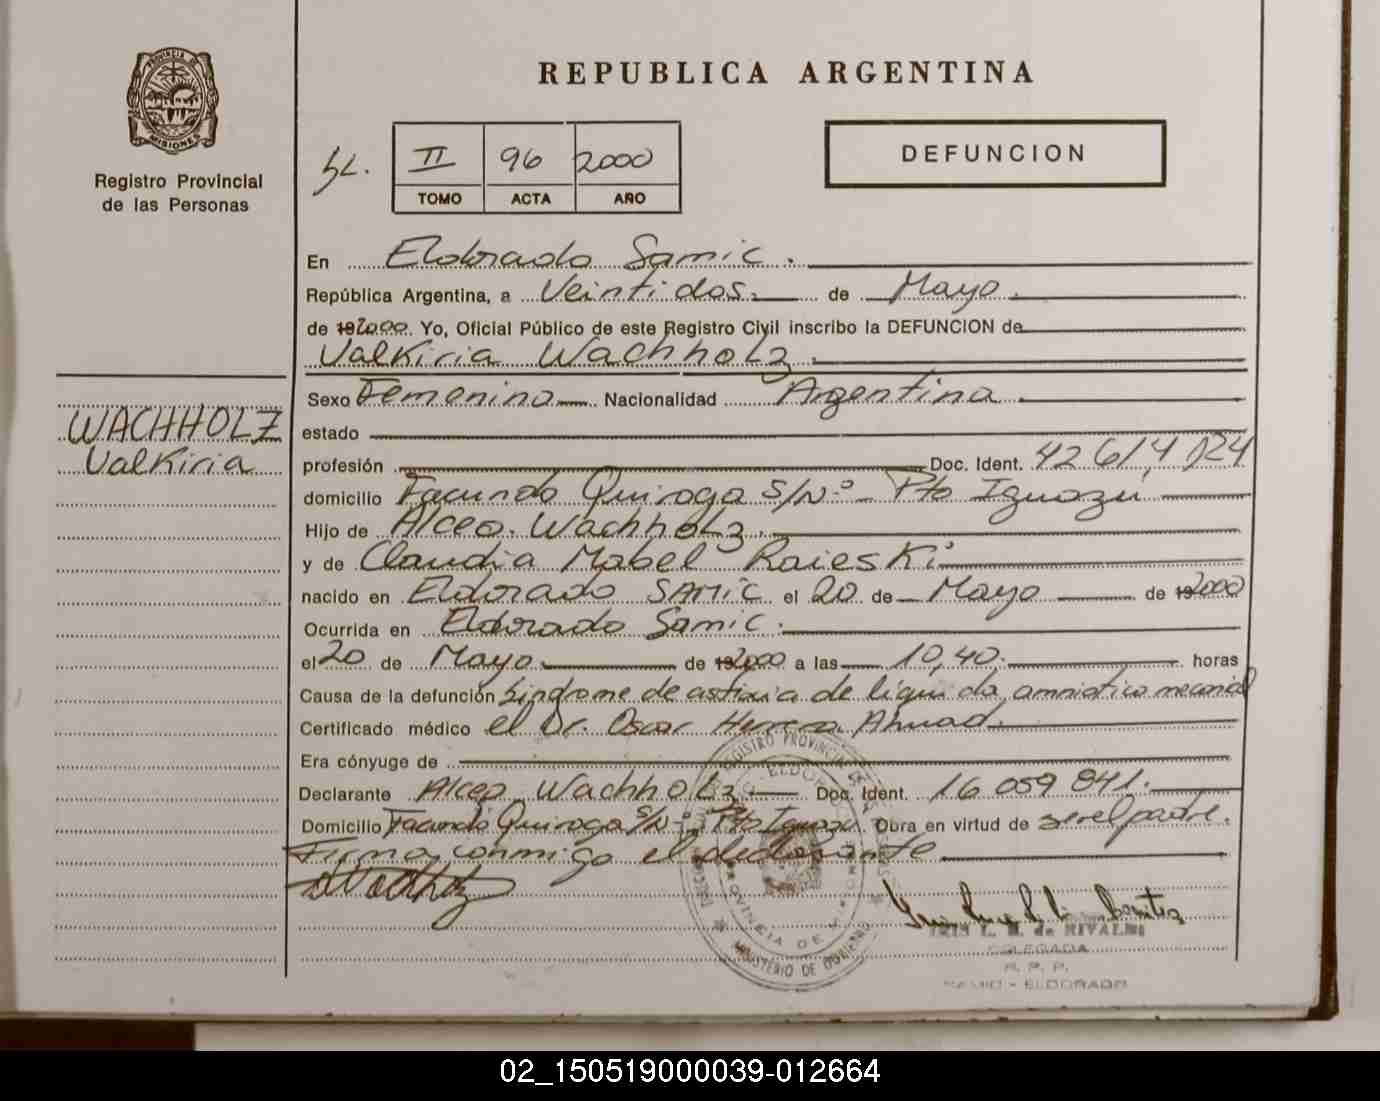 PROVINCIA DE
MISIONES
Registro Provincial
de las Personas
REPUBLICA ARGENTINA
DEFUNCION
II 96 2000
TOMO ACTA AÑO
En Eldorado Samic.
República Argentina, a Veintidos de Mayo.
de 192000. Yo, Oficial Público de este Registro Civil inscribo la DEFUNCION de
Valkiria Wachholz.
WACHHOLZ
Valkiria
Sexo Femenino Nacionalidad Argentina
estado
profesión Doc. Ident. 42 614,124
domicilio Facundo Quiroga S/Nº Pto Iguazú
Hijo de Alceo Wachholz.
y de Claudia Mabel Raieski
nacido en Eldorado SAMIC el 20 de Mayo de 192000
Ocurrida en Eldorado Samic.
el 20 de Mayo de 192000 a las 10,40. horas
Causa de la defunción Sindrome de astixia de liquido amniotico meconial
Certificado médico el Dr. Oscar Herrera Ahuad.
Era cónyuge de
Declarante Alceo Wachholz Doc. Ident. 16 059 841.
Domicilio Facundo Quiroga S/Nº Pto Iguazú Obra en virtud de ser el padre.
Firma conmigo el declarante
REGISTRO PROVINCIAL DE LAS PERSONAS
MINISTERIO DE GOBIERNO
PROVINCIA DE
IRIS L. B. de RIVALDI
DELEGADA
R. P. P.
SAMIC - ELDORADO
02_150519000039-012664